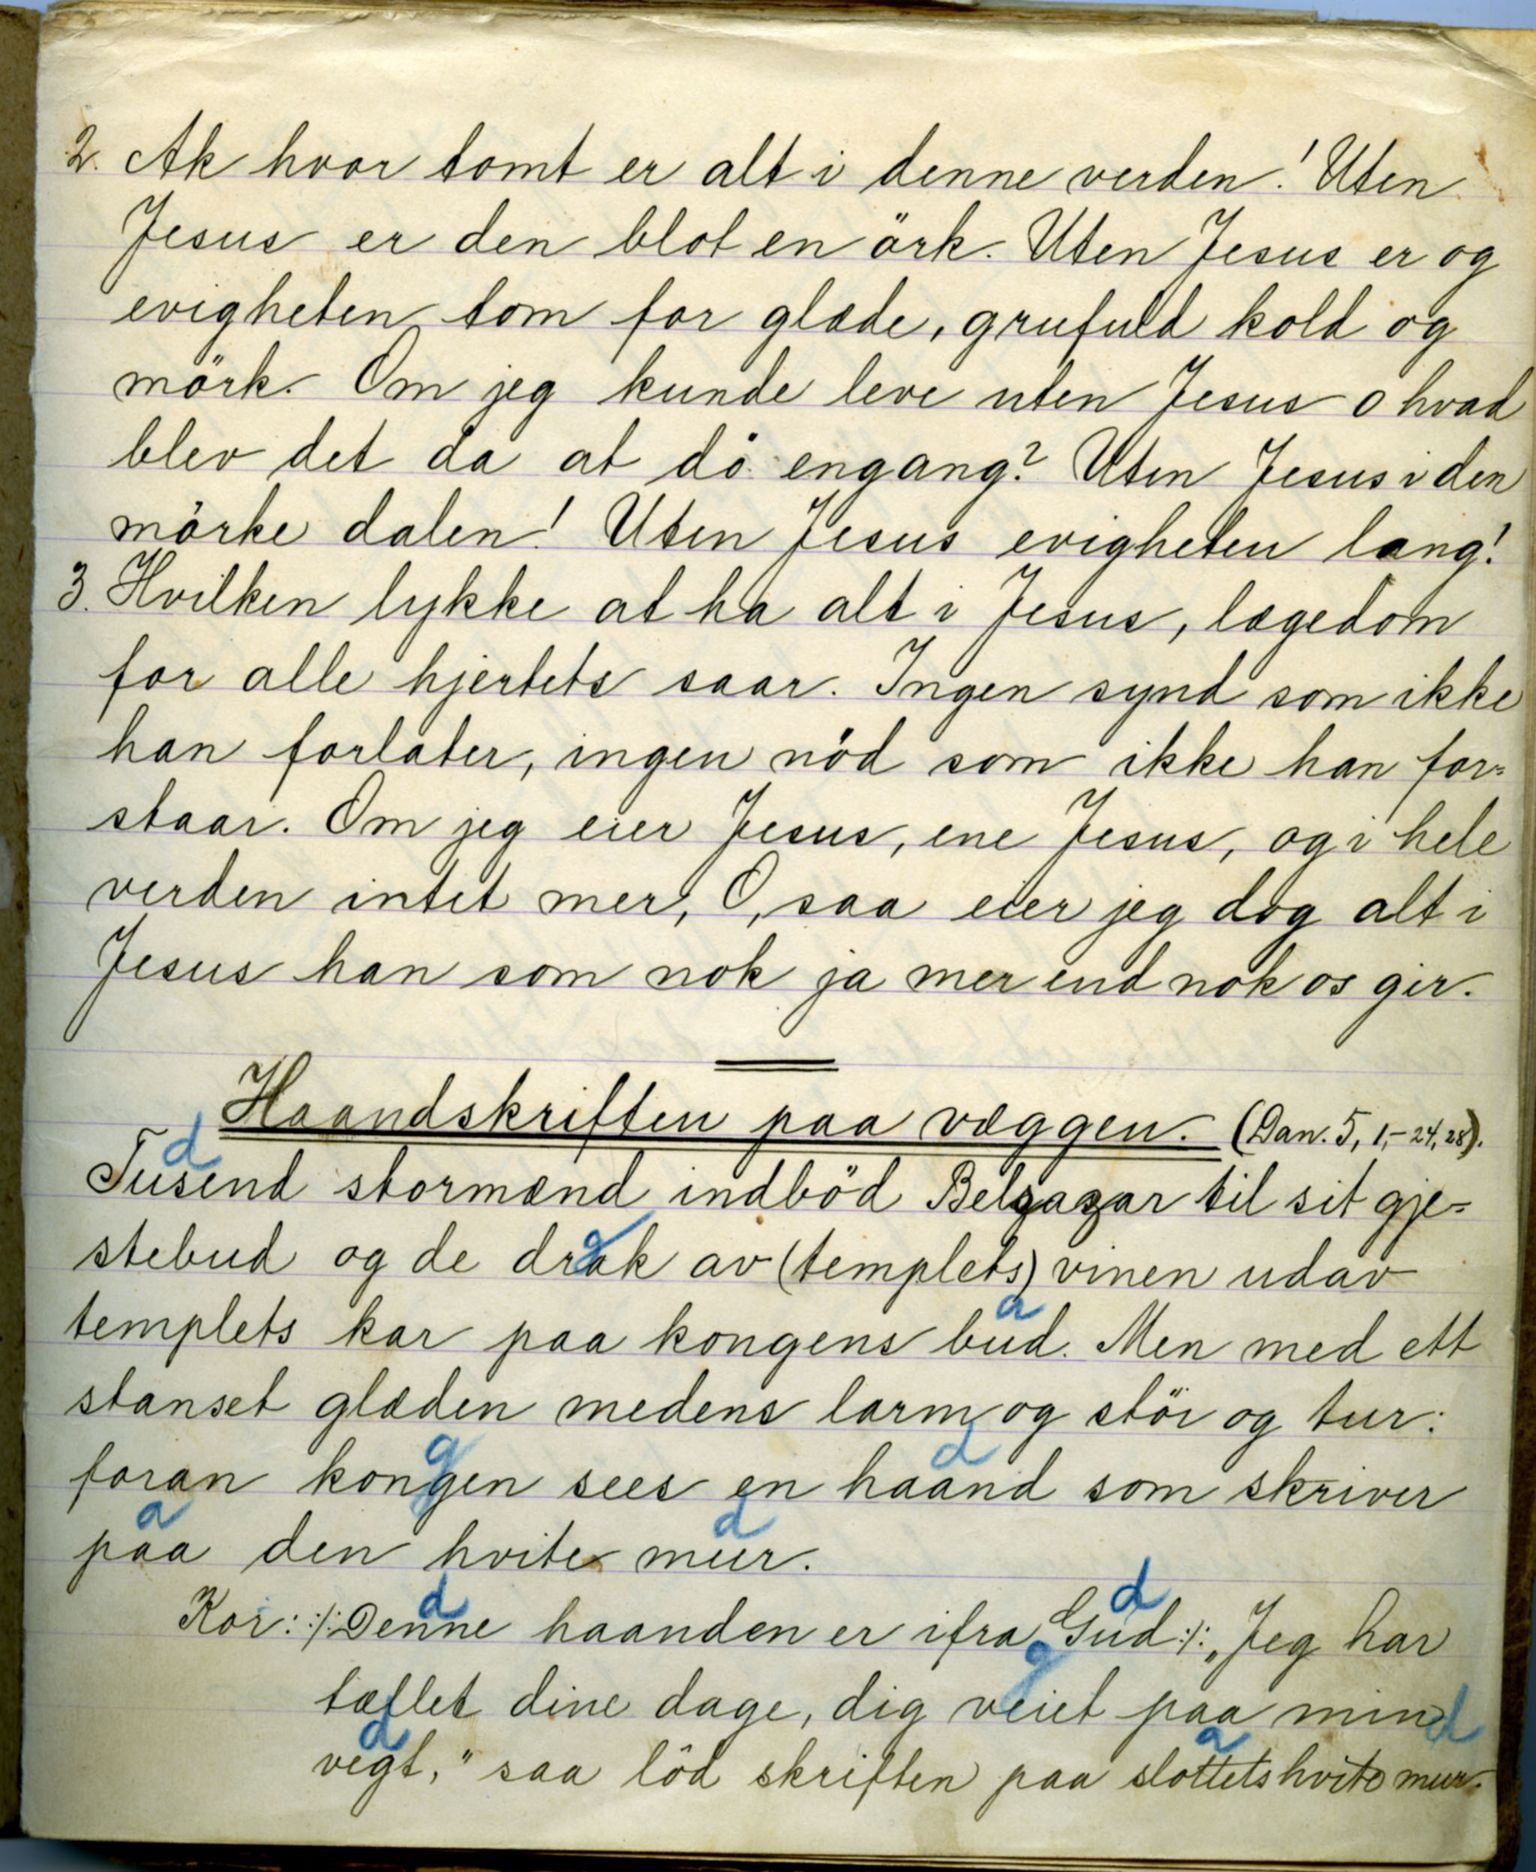 2. Ak hvor tomt er alt i denne verden! Uten
Jesus er den blot en örk. Uten Jesus er og
evigheten tom for glæde, grufuld kold og
mörk. Om jeg kunde leve uten Jesus o hvad
blev det da at dö engang? Uten Jesus i den
mörke dalen! Uten Jesus evigheten lang!
3. Hvilken lykke at ha alt i Jesus, lægedom
for alle hjertets saar. Ingen synd som ikke
han forlater, ingen nöd som ikke han for=
staar. Om jeg eier Jesus, ene Jesus, og i hele
verden intet mer, O, saa eier jeg dog alt i
Jesus han som nok ja mer end nok os gir.
Haandskriften paa væggen. (Dan. 5, 1,-24, 28).
d
Tusend stormænd indböd Belsazar til sit gje=
g
stebud og de drak av (templets) vinen udav
a
templets kar paa kongens bud. Men med ett
stanset glæden medens larm og stöi og tur:
g d
foran kongen sees en haand som skriver
a d
paa den hvite mur.
d d
Kor: :/: Denne haanden er ifra Gud :/: „Jeg har
g
tællet dine dage, dig veiet paa min
d a d
vegt," saa löd skriften paa slottets hvite mur.